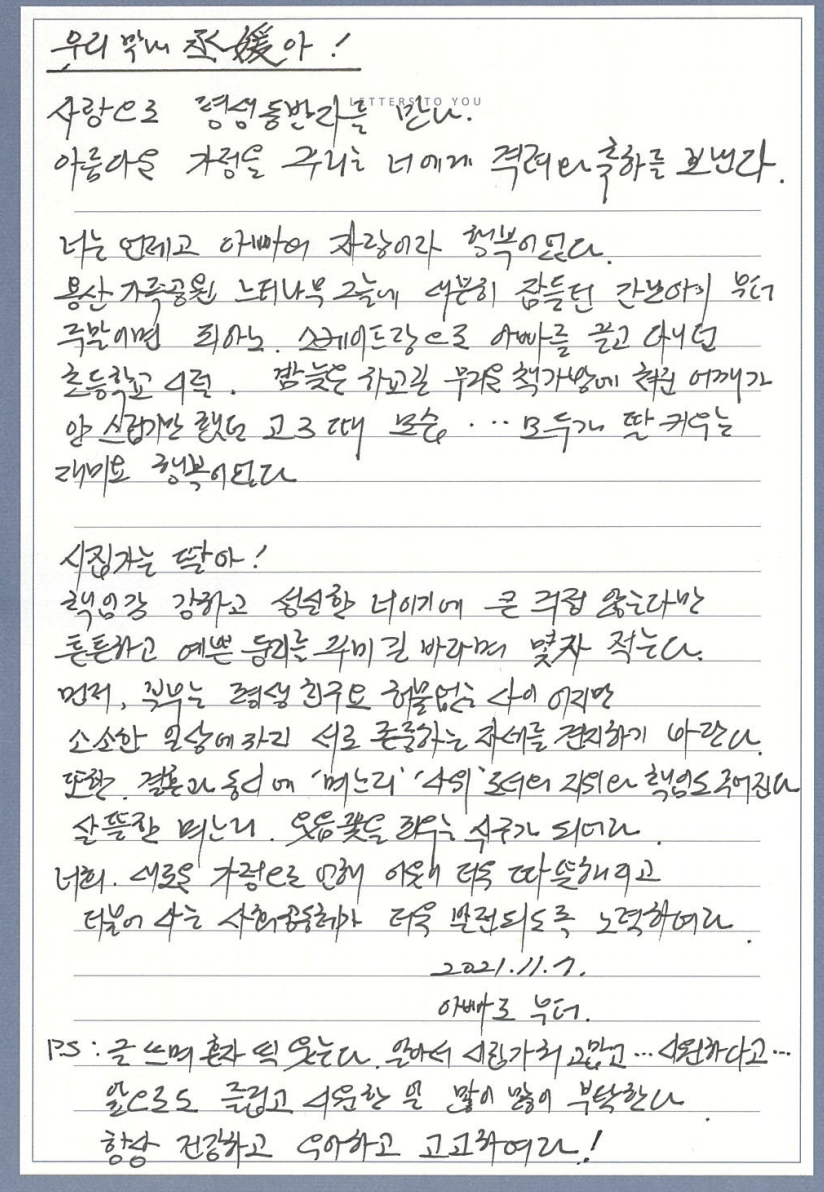 우리 막내 丞媛아!
LETTERS TO YOU
사랑으로 평생동반자를 만나.
아름다운 가정을 꾸리는 너에게 격려와 축하를 보낸다.
너는 언제고 아빠의 자랑이라 행복이었다.
용산가족공원 느티나무 그늘에 새분히 잠들던 간난아이 부터
주말이면 피아노. 스케이트장으로 아빠를 끌고 다니던
초등학교 시절. 밤늦은 하교길 무거운 책가방에 처진 어깨가
안스럽기만 했던 고3 때 모습 ··· 모두가 딸 키우는
재미요 행복이었다
시집가는 딸아!
책임감 강하고 성실한 너이기에 큰 걱정 않는다만
튼튼하고 예쁜 둥지를 꾸미길 바라며 몇자 적는다.
먼저, 부부는 평생 친구요 허물없는 사이 이지만
소소한 일상에까지 서로 존중하는 자세를 견지하기 바란다.
또한. 결혼과 동시에 '며느리' '사위'로서의 지위와 책임도 주어진다
살뜰한 며느리. 웃음꽃을 피우는 식구가 되어라.
너희. 새로운 가정으로 인해 이웃이 더욱 따뜻해지고
더불어 사는 사회공동체가 더욱 발전되도록 노력하여라.
2021.11.7.
아빠로 부터.
PS : 글 쓰며 혼자 씩 웃는다. 알아서 시집가줘 고맙고 ··· 시원하다고 ···
앞으로도 즐겁고 시원한 일 많이 많이 부탁한다.
항상 건강하고 우아하고 고고하여라!